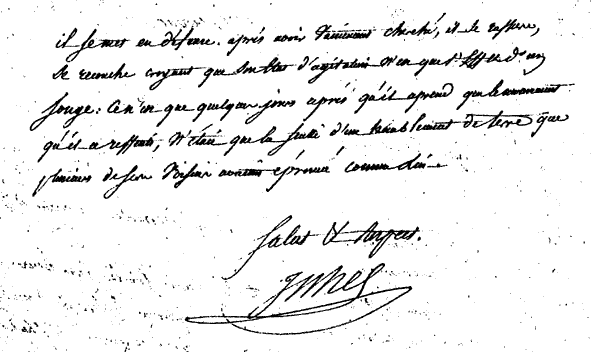 il se met en défense. après avoir vainement cherché, il se rassure,
se recouche croyant que son état d'agitation n'est que l'effet d'un
songe: Ce n'est que quelques jours après qu'il aprend que le mouvement
qu'il a ressenti, n'était que la suite d'un tremblement de terre que
plusieurs de ses voisins avaient éprouvé comme lui.
Salut & Respect.